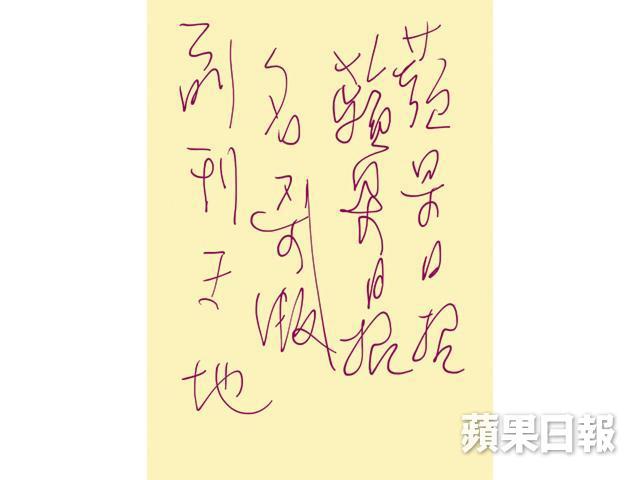 蘋果日報
蘋果日報
名 版
副刊天地
蘋果日報